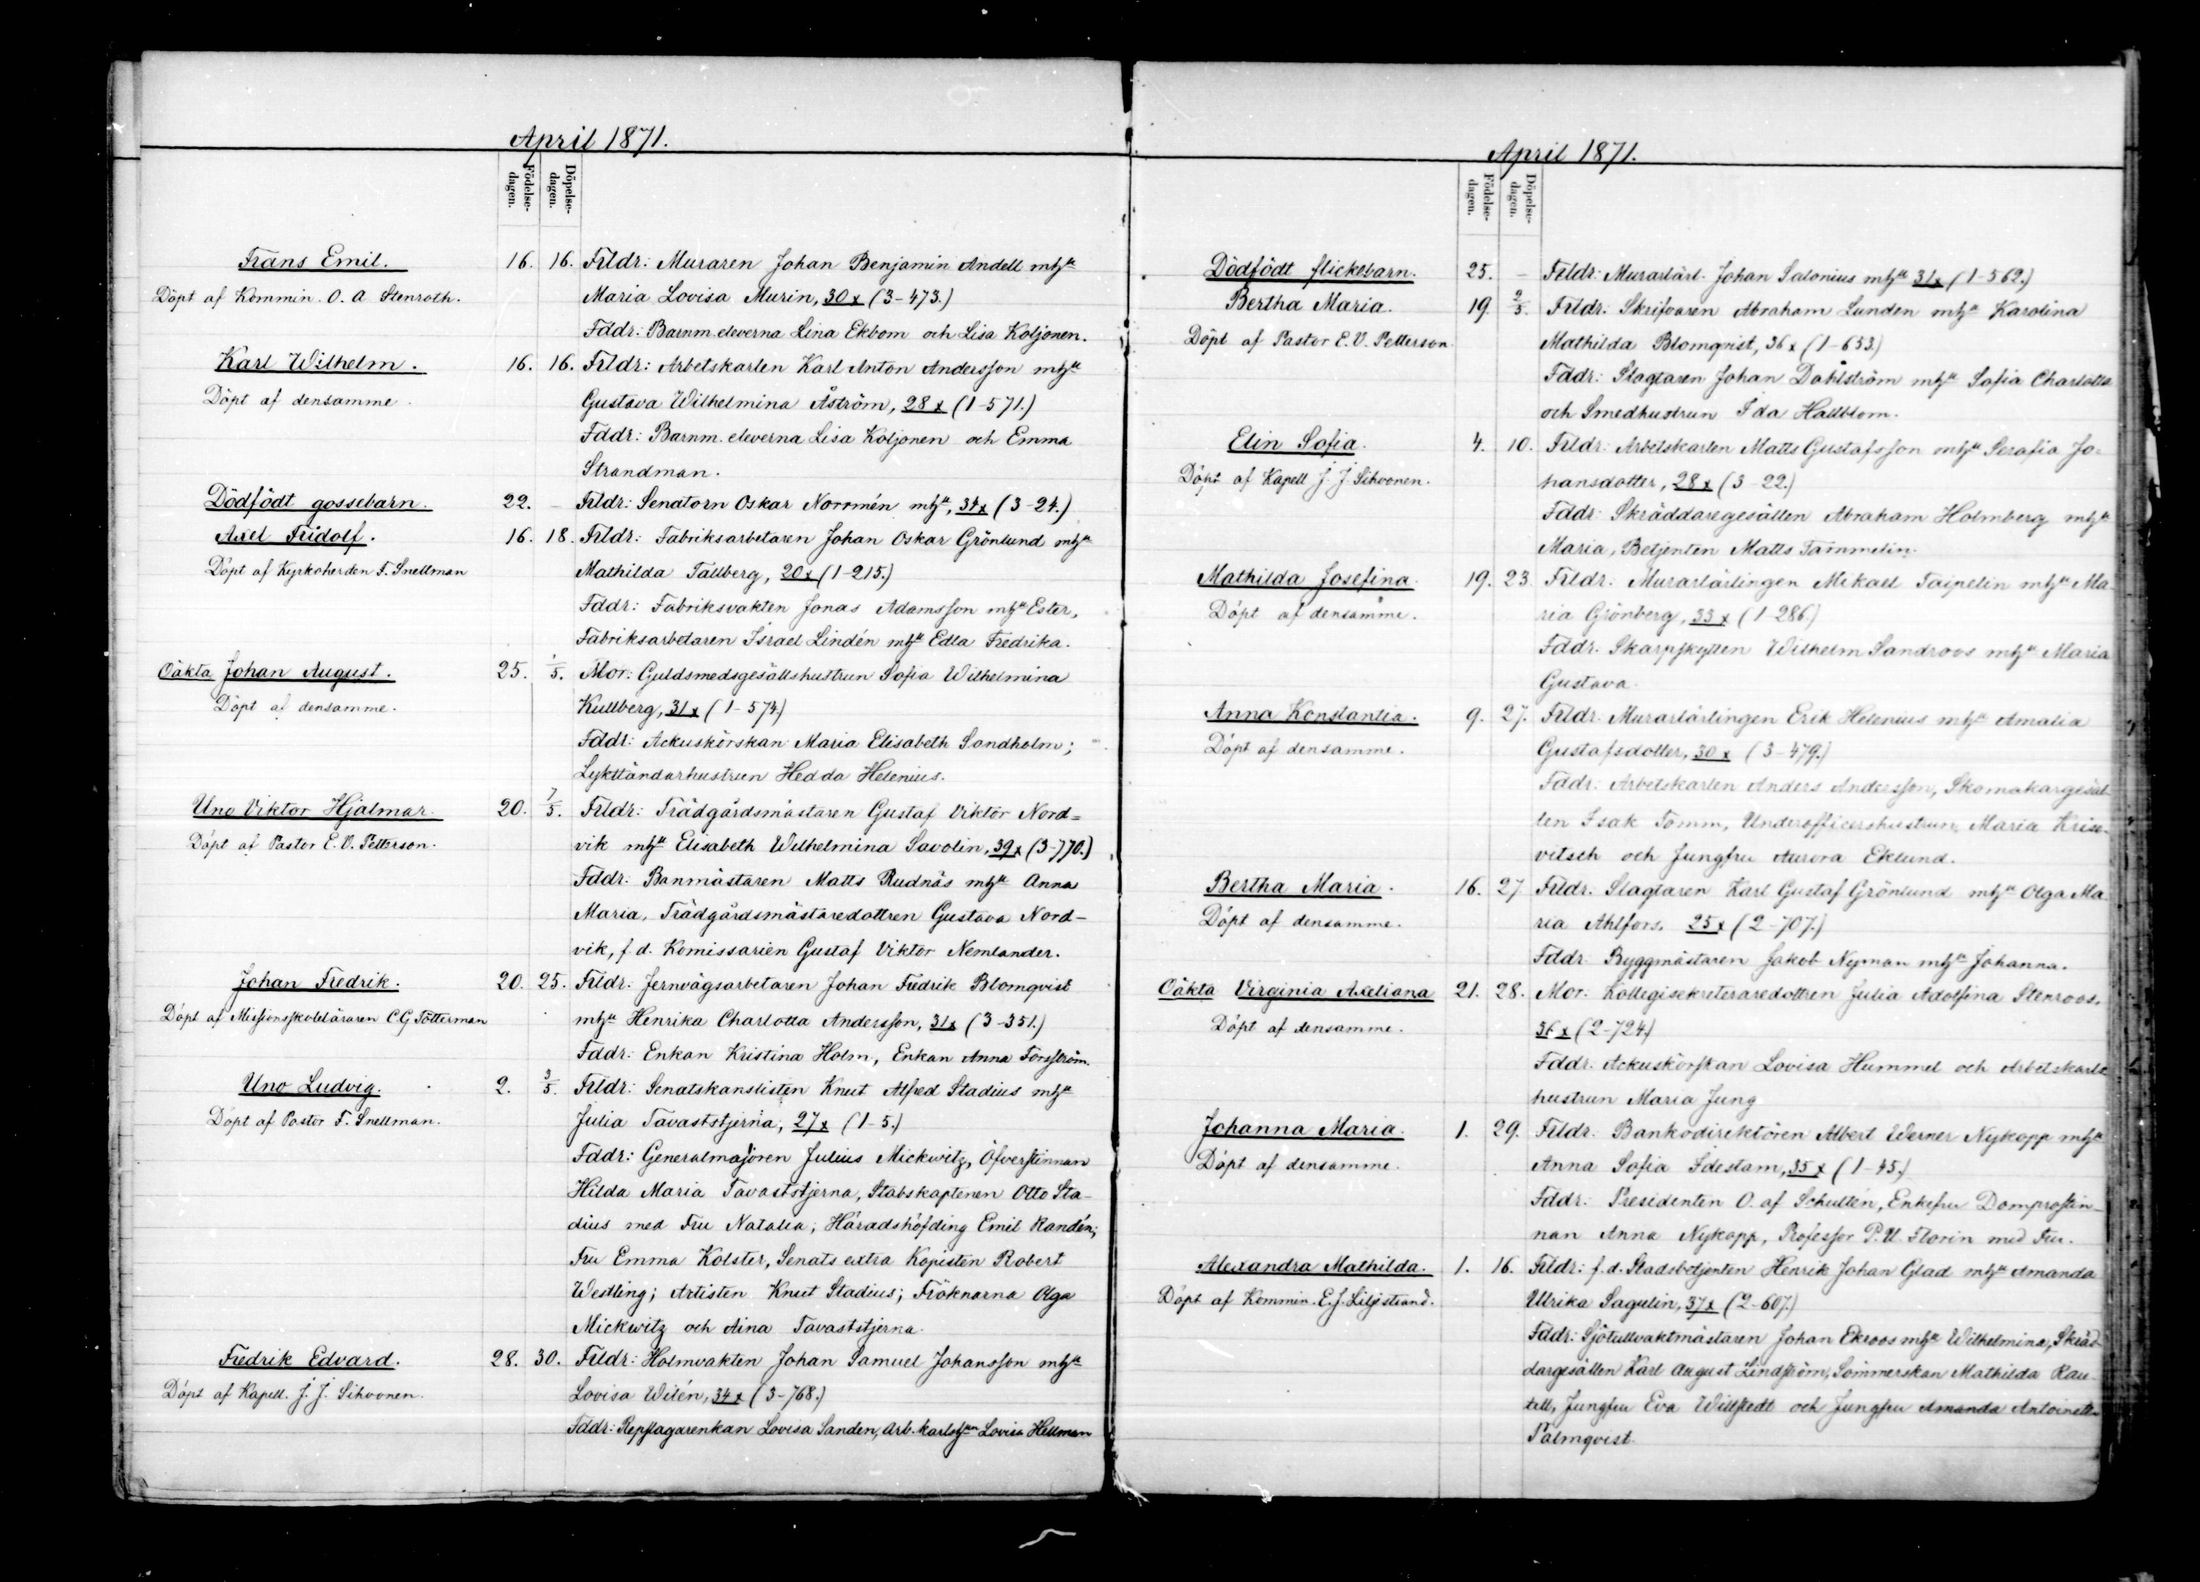 April 1871.
Födelse-
dagen.
Döpelse-
dagen.
Frans Emil. 16. 16. Frldr: Muraren Johan Benjamin Andell mhu
Döpt af Kommin. O. A Stenroth. Maria Lovisa Murin, 30 x (3-473.)
Fddr: Barnm. eleverna Lina Ekbom och Lisa Koljonen.
Karl Wilhelm. 16. 16. Frldr: Arbetskarlen Karl Anton Andersson mhu
Döpt af densamme. Gustava Wilhelmina Åström, 28 x (1-571.)
Fddr: Barnm. eleverna Lisa Koljonen och Emma
Strandman.
Dödfödt gossebarn. 22. - Frldr: Senatorn Oskar Norrmén mhu, 34 x (3-24.)
Axel Fridolf. 16. 18. Frldr: Fabriksarbetaren Johan Oskar Grönlund mhu
Döpt af Kyrkoherden F. Snellman Mathilda Tallberg, 20 x (1-215.)
Fddr: Fabriksvakten Jonas Adamsson mhu Ester,
Fabriksarbetaren Israel Lindén mhu Edla Fredrika.
Oäkta Johan August. 25. 1/5. Mor: Guldsmedsgesällshustrun Sofia Wilhelmina
Döpt af densamme. Kullberg, 31 x (1-574.)
Fddr: Ackuskörskan Maria Elisabeth Sandholm;
Lykttändarhustrun Hedda Helenius.
Uno Viktor Hjalmar. 20. 7/5. Frldr: Trädgårdsmästaren Gustaf Viktor Nord=
Döpt af Pastor E. V. Petterson. vik mhu Elisabeth Wilhelmina Savolin, 39 x (3-770.)
Fddr: Banmästaren Matts Rudnäs mhu Anna
Maria, Trädgårdsmästaredottren Gustava Nord-
vik, f d. Komissarien Gustaf Viktor Nemlander.
Johan Fredrik. 20. 25. Frldr: Jernvägsarbetaren Johan Fredrik Blomqvist
Döpt af Missionsskoleläraren C G Tötterman mhu Henrika Charlotta Andersson, 31 x (3-351.)
Fddr: Enkan Kristina Holm, Enkan Anna Forsström.
Uno Ludvig. 2. 3/5. Frldr: Senatskanslisten Knut Alfred Stadius mhu
Döpt af Pastor F. Snellman. Julia Tavaststjerna, 27 x (1-5.)
Fddr: Generalmajoren Julius Mickwitz, Öfverstinnan
Hilda Maria Tavaststjerna, Stabskaptenen Otto Sta-
dius med Fru Natalia; Häradshöfding Emil Randén;
Fru Emma Kolster, Senats extra Kopisten Robert
Westling; Artisten Knut Stadius; Fröknarna Olga
Mickwitz och Aina Tavaststjerna.
Fredrik Edvard. 28. 30. Frldr: Holmvakten Johan Samuel Johansson mhu
Döpt af Kapell. J. J. Sihvonen. Lovisa Witén, 34 x (3-768.)
Fddr: Repslagarenkan Lovisa Sanden, Arb. karlshun Lovisa Hellman
April 1871.
Födelse-
dagen.
Döpelse-
dagen.
Dödfödt flickebarn. 25. - Frldr: Murarlärl. Johan Salonius mhu 31 x (1-562.)
Bertha Maria. 19. 2/5. Frldr. Skrifvaren Abraham Lunden mhu Karolina
Döpt af Pastor E. V. Petterson Mathilda Blomqvist, 36 x (1-653.)
Fddr: Slagtaren Johan Dahlström mhu Sofia Charlotta
och Smedhustrun Ida Hallblom.
Elin Sofia. 4. 10. Frldr: Arbetskarlen Matts Gustafsson mhu Serafia Jo-
Döpt af Kapell J. J Sihvonen. hansdotter, 28 x (3-22.)
Fddr: Skräddaregesällen Abraham Holmberg mhu
Maria, Betjenten Matts Tammelin.
Mathilda Josefina. 19. 23. Frldr. Murarlärlingen Mikael Taipelin mhu Ma-
Döpt af densamme. ria Grönberg, 33 x (1-286.)
Fddr. Skarpskytten Wilhelm Sandroos mhu Maria
Gustava.
Anna Konstantia. 9. 27. Frldr. Murarlärlingen Erik Helenius mhu Amalia
Döpt af densamme. Gustafsdotter, 30 x (3-479.)
Fddr: Arbetskarlen Anders Andersson, Skomakargesäl-
len Isak Tomm, Underofficershustrun Maria Kriso-
vitsch och Jungfru Aurora Eklund.
Bertha Maria. 16. 27 Frldr. Slagtaren Karl Gustaf Grönlund mhu Olga Ma-
Döpt af densamme. ria Ahlfors. 25 x (2-707.)
Fddr. Byggmästaren Jakob Nyman mhu Johanna.
Oäkta Virginia Axeliana 21. 28. Mor: Kollegisekreteraredottren Julia Adolfina Stenroos,
Döpt af densamme. 36 x (2-724.)
Fddr. Ackuskörskan Lovisa Hummel och Arbetskarls-
hustrun Maria Jung
Johanna Maria. 1. 29. Frldr. Bankodirektören Albert Werner Nykopp mhu
Döpt af densamme. Anna Sofia Idestam, 35 x (1-45.)
Fddr: Presidenten O. af Schultén, Enkefru Domprostin-
nan Anna Nykopp, Professor P. U. Florin med Fru.
Alexandra Mathilda. 1. 16. Frldr: f. d. Stadsbetjenten Henrik Johan Glad mhu Amanda
Döpt af Kommin. E. J. Liljestrand. Ulrika Sagulin, 37 x (2-607.)
Fddr: Sjötullvaktmästaren Johan Ekroos mhu Wilhelmina, Skräd-
dargesällen Karl August Lindström, Sömmerskan Mathilda Rau-
tell, Jungfru Eva Willstedt och Jungfru Amanda Antoinette
Palmqvist.